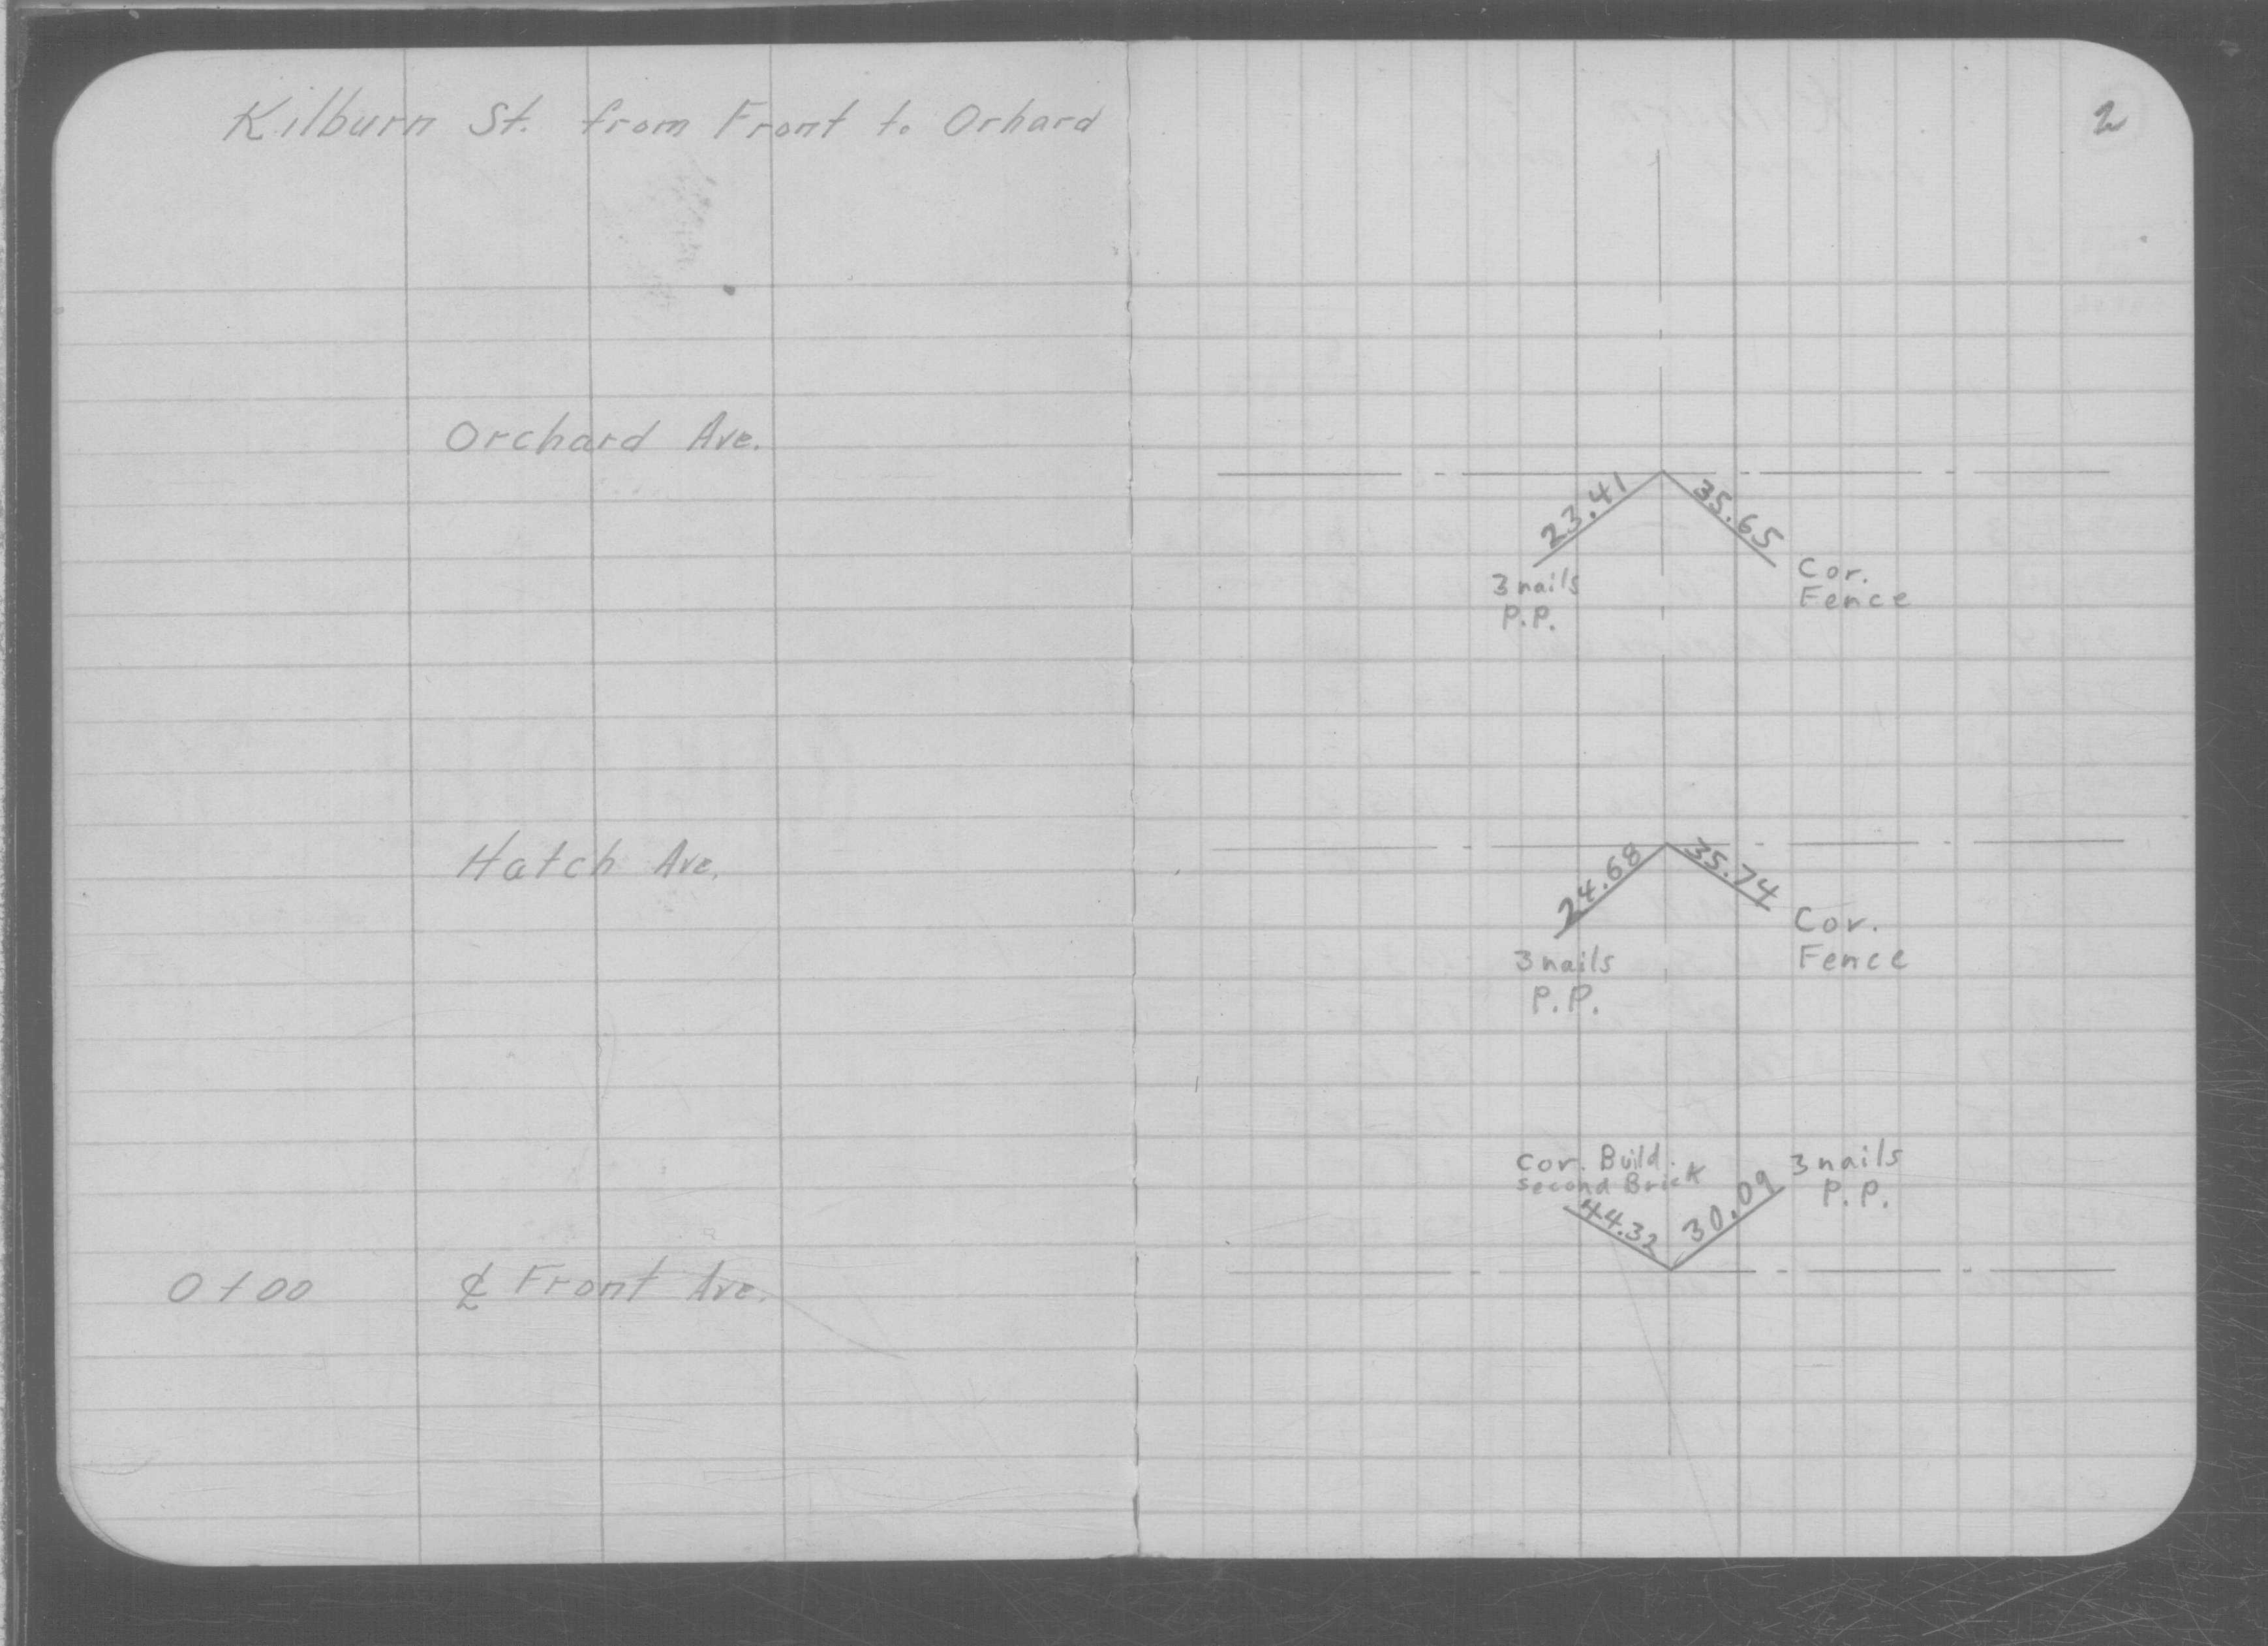 Kilburn St. from Front to Orhard
2
Orchard Ave.
23.41
35.65
3 nails
P.P.
Cor.
Fence
Hatch Ave.
24.68
35.74
3 nails
P.P.
Cor.
Fence
Cor. Build.
second Brick
44.32
30.09
3 nails
P.P.
0+00 ℄ Front Ave.